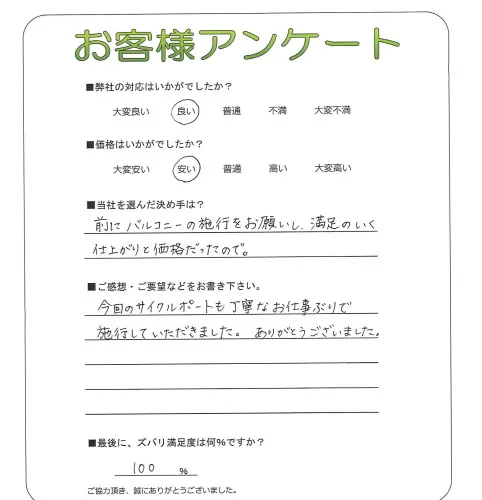 お客様アンケート
■弊社の対応はいかがでしたか？
大変良い 良い 普通 不満 大変不満
■価格はいかがでしたか？
大変安い 安い 普通 高い 大変高い
■当社を選んだ決め手は？
前にバルコニーの施行をお願いし、満足のいく
仕上がりと価格だったので。
■ご感想・ご要望などをお書き下さい。
今回のサイクルポートも丁寧なお仕事ぶりで
施行していただきました。ありがとうございました。
■最後に、ズバリ満足度は何%ですか？
100 %
ご協力頂き、誠にありがとうございました。